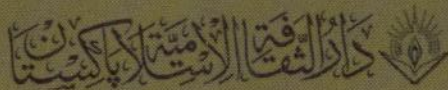 دَارُ الثَّقَافَةِ الْإِسْلَامِيَّةِ لَا پَاكِسْتَان